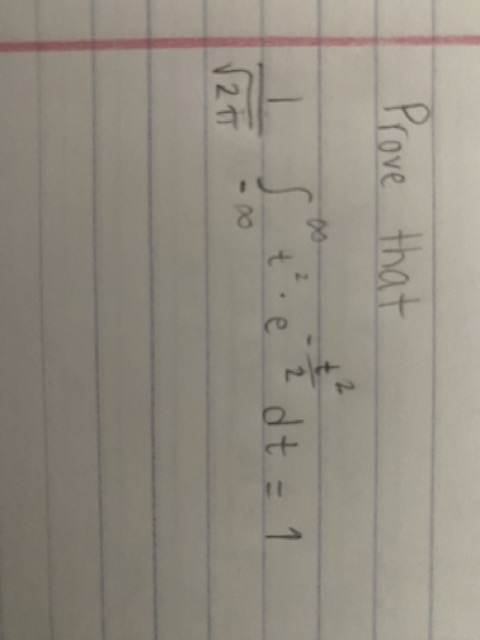 Prove that
1/√2π ∫_-∞^∞ t² · e^(-t²/2) dt = 1